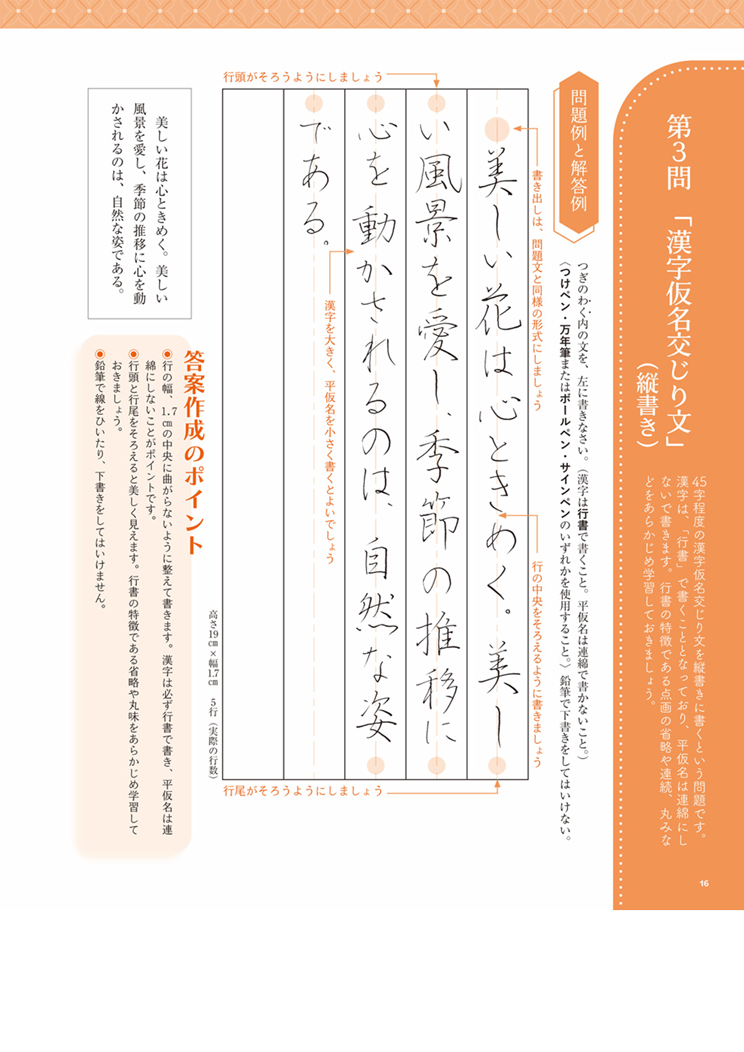 第3問 「漢字仮名交じり文」
(縦書き)
45字程度の漢字仮名交じり文を縦書きに書くという問題です。
漢字は、「行書」で書くこととなっており、平仮名は連綿にし
ないで書きます。行書の特徴である点画の省略や連続、丸みな
どをあらかじめ学習しておきましょう。
16
問題例と解答例
つぎのわく内の文を、左に書きなさい。(漢字は行書で書くこと。平仮名は連綿で書かないこと。)
(つけペン・万年筆またはボールペン・サインペンのいずれかを使用すること。)鉛筆で下書きをしてはいけない。
書き出しは、問題文と同様の形式にしましょう
行の中央をそろえるように書きましょう
行頭がそろうようにしましょう
美しい花は心ときめく。美し
い風景を愛し、季節の推移に
心を動かされるのは、自然な姿
である。
漢字を大きく、平仮名を小さく書くとよいでしょう
行尾がそろうようにしましょう
高さ19㎝×幅1.7㎝ 5行(実際の行数)
美しい花は心ときめく。美しい
風景を愛し、季節の推移に心を動
かされるのは、自然な姿である。
答案作成のポイント
●行の幅、1.7㎝の中央に曲がらないように整えて書きます。漢字は必ず行書で書き、平仮名は連
綿にしないことがポイントです。
●行頭と行尾をそろえると美しく見えます。行書の特徴である省略や丸味をあらかじめ学習して
おきましょう。
●鉛筆で線をひいたり、下書きをしてはいけません。